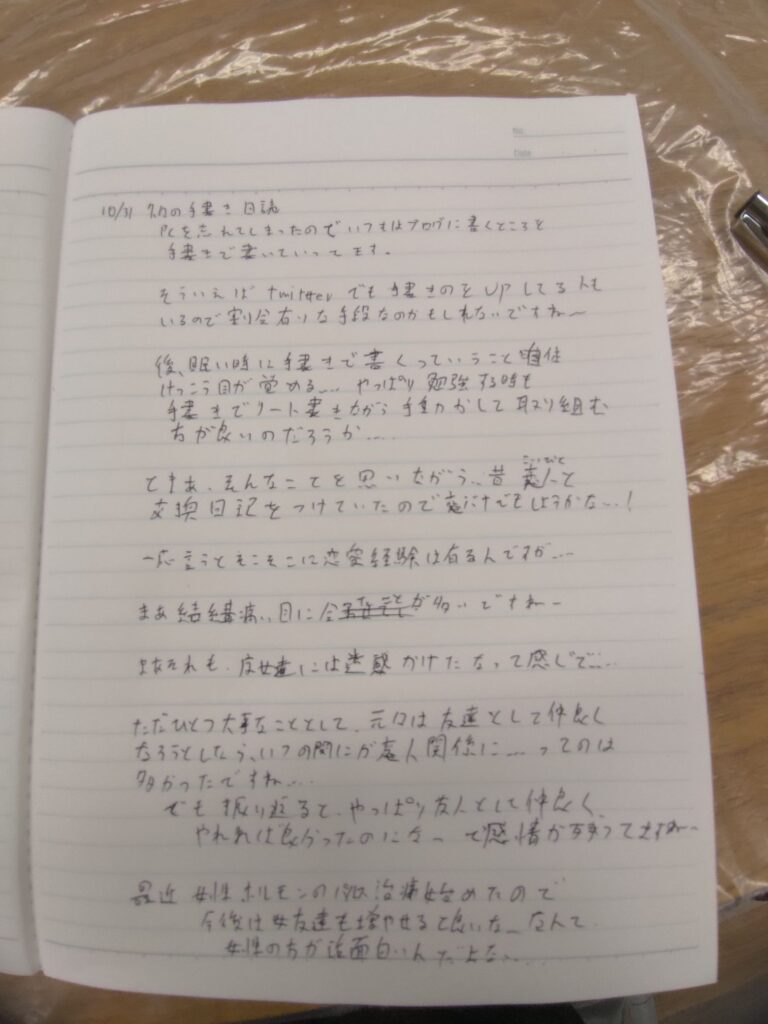 No.
Date
10/31 初の手書き日誌
PCを忘れてしまったのでいつもはブログに書くところを
手書きで書いていってます。
そういえば twitter でも手書きのをUPしてる人も
いるので割合有りな手段なのかもしれないですね〜
後、眠い時に手書きで書くっていうこと自体
けっこう目が覚める... やっぱり勉強する時も
手書きでノート書きながら手動かして取り組む
方が良いのだろうか....
とまあ、そんなことを思いながら、昔恋人と
こいびと
交換日記をつけていたので でもしようかな...!
一応言うとそこそこに恋愛経験は有る人ですが...
まあ結構痛い目に会 なことが多いですね〜
まあそれも、彼女達には迷惑かけたなって感じで....
ただひとつ大事なこととして、元々は友達として仲良く
なろうとしたら、いつの間にか恋人関係に....ってのは
多かったですね....
でも振り返ると、やっぱり友人として仲良く
やれれば良かったのになーって感情が うてますね〜
最近 女性ホルモンの 治療始めたので
今後は女友達も増やせると良いな〜なんて
女性の方が話面白いんだよな....